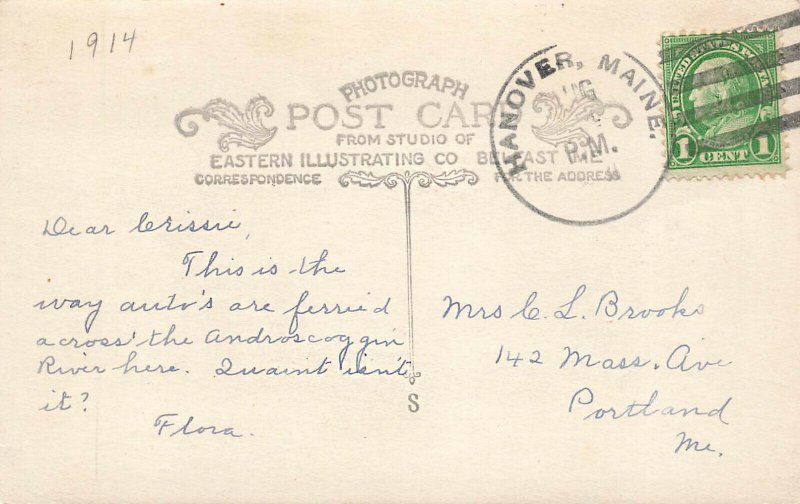 1914
PHOTOGRAPH
POST CARD
FROM STUDIO OF
EASTERN ILLUSTRATING CO BELFAST ME
CORRESPONDENCE
FOR THE ADDRESS
HANOVER, MAINE.
P.M.
UNITED STATES POSTAGE
1 CENT 1
Dear Crissie,
This is the
way auto's are ferried
across the Androscoggin
River here. Quaint isn't
it?
Flora.
S
Mrs C. L. Brooks
142 Mass. Ave
Portland
Me.